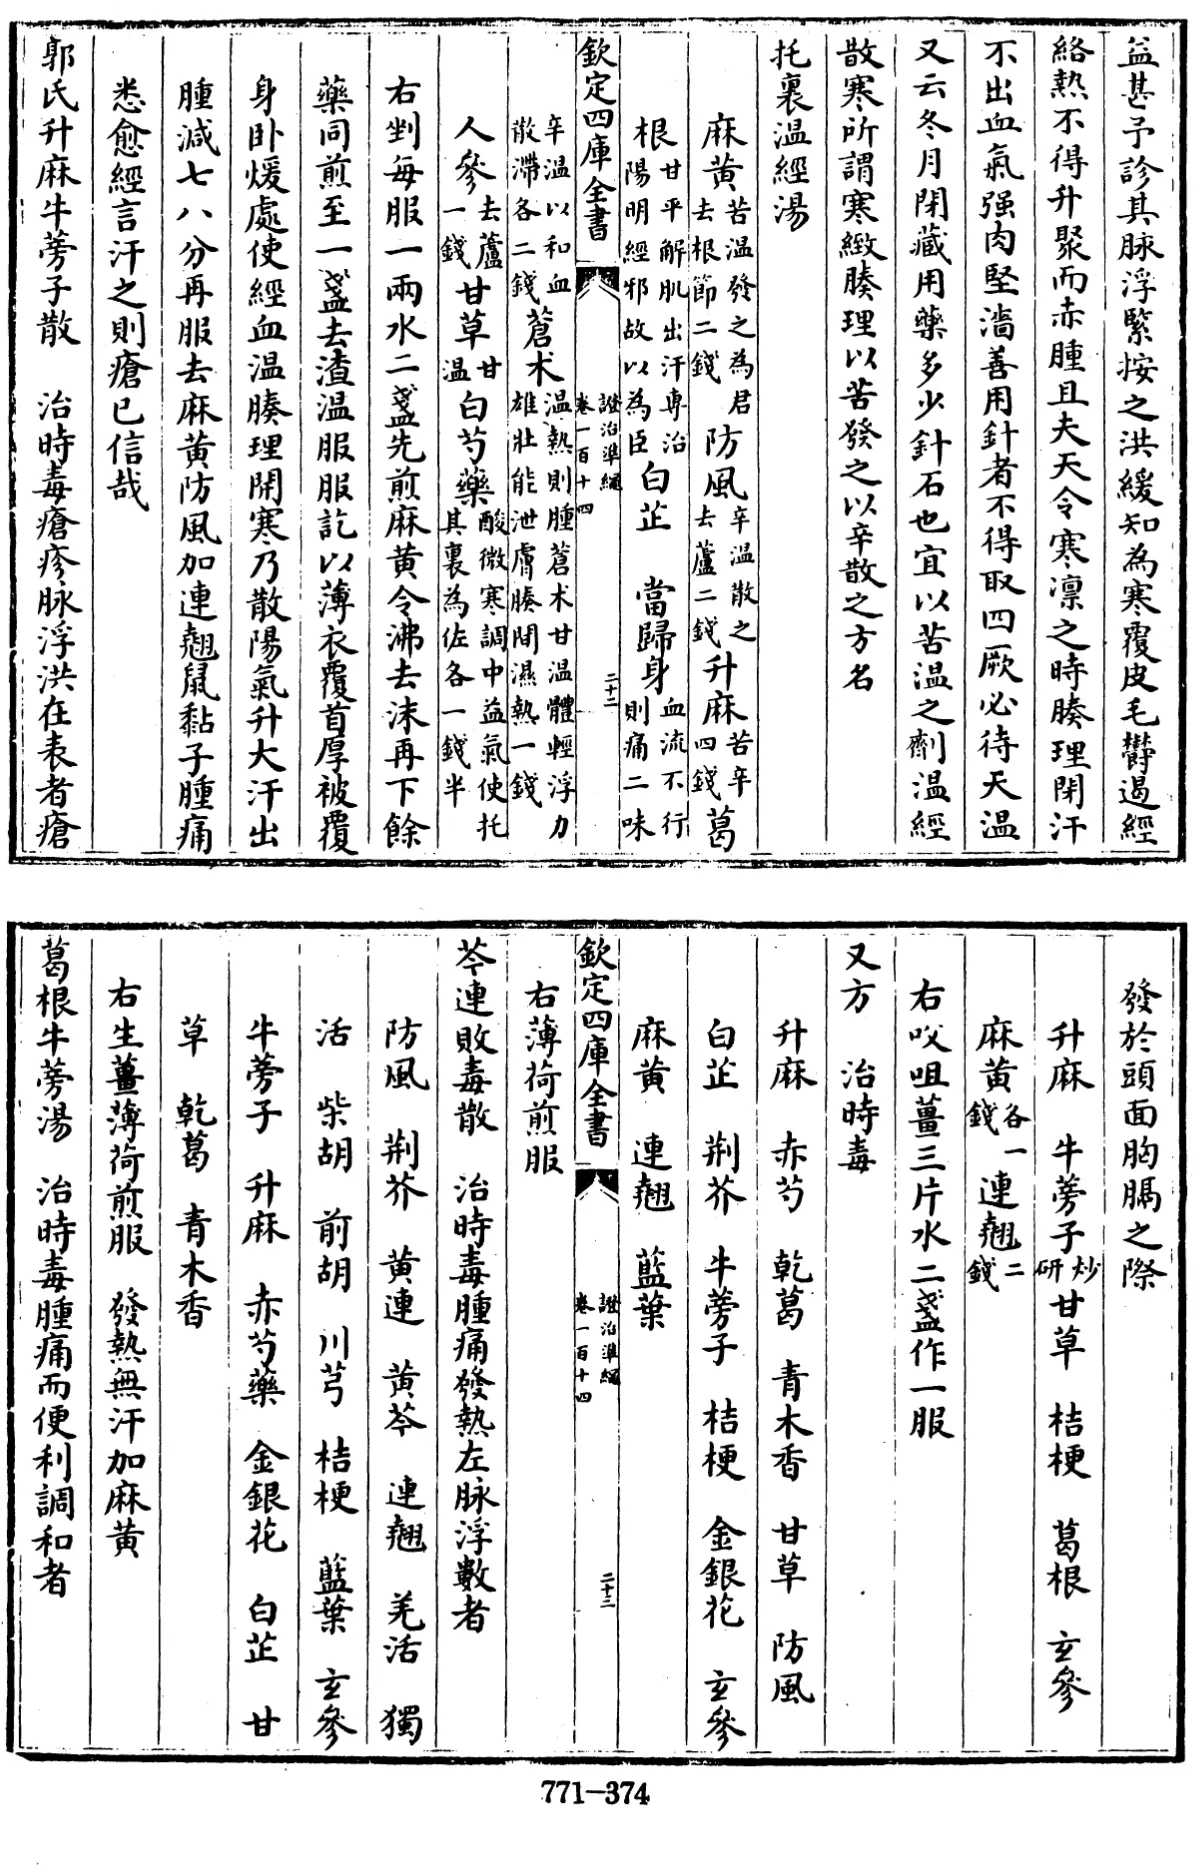 益甚予診其脉浮緊按之洪緩知為寒覆皮毛鬱遏經
絡熱不得升聚而赤腫且夫天令寒凜之時腠理閉汗
不出血氣强肉堅濇善用針者不得取四厥必待天温
又云冬月閉藏用藥多少針石也宜以苦温之劑温經
散寒所謂寒緻腠理以苦發之以辛散之方名
托裏温經湯
麻黄苦温發之為君去根節二錢 防風辛温散之去蘆二錢 升麻苦辛四錢 葛
根甘平解肌出汗專治陽明經邪故以為臣 白芷 當歸身血流不行則痛二味
欽定四庫全書 證治準繩 卷一百十四 二十二
辛温以和血散滯各二錢 蒼术温熱則腫蒼术甘温體輕浮力雄壯能泄膚腠間濕熱一錢
人參去蘆一錢 甘草甘温 白芍藥酸微寒調中益氣使托其裏為佐各一錢半
右剉每服一兩水二盞先煎麻黄令沸去沫再下餘
藥同煎至一盞去渣温服服訖以薄衣覆首厚被覆
身卧煖處使經血温腠理開寒乃散陽氣升大汗出
腫減七八分再服去麻黄防風加連翹鼠黏子腫痛
悉愈經言汗之則瘡已信哉
郭氏升麻牛蒡子散 治時毒瘡疹脉浮洪在表者瘡
發於頭面胸膈之際
升麻 牛蒡子炒研 甘草 桔梗 葛根 玄參
麻黄各一錢 連翹二錢
右㕮咀薑三片水二盞作一服
又方 治時毒
升麻 赤芍 乾葛 青木香 甘草 防風
白芷 荆芥 牛蒡子 桔梗 金銀花 玄參
麻黄 連翹 藍葉
欽定四庫全書 證治準繩 卷一百十四 二十三
右薄荷煎服
芩連敗毒散 治時毒腫痛發熱左脉浮數者
防風 荆芥 黄連 黄芩 連翹 羌活 獨
活 柴胡 前胡 川芎 桔梗 藍葉 玄參
牛蒡子 升麻 赤芍藥 金銀花 白芷 甘
草 乾葛 青木香
右生薑薄荷煎服 發熱無汗加麻黄
葛根牛蒡湯 治時毒腫痛而便利調和者
771-374